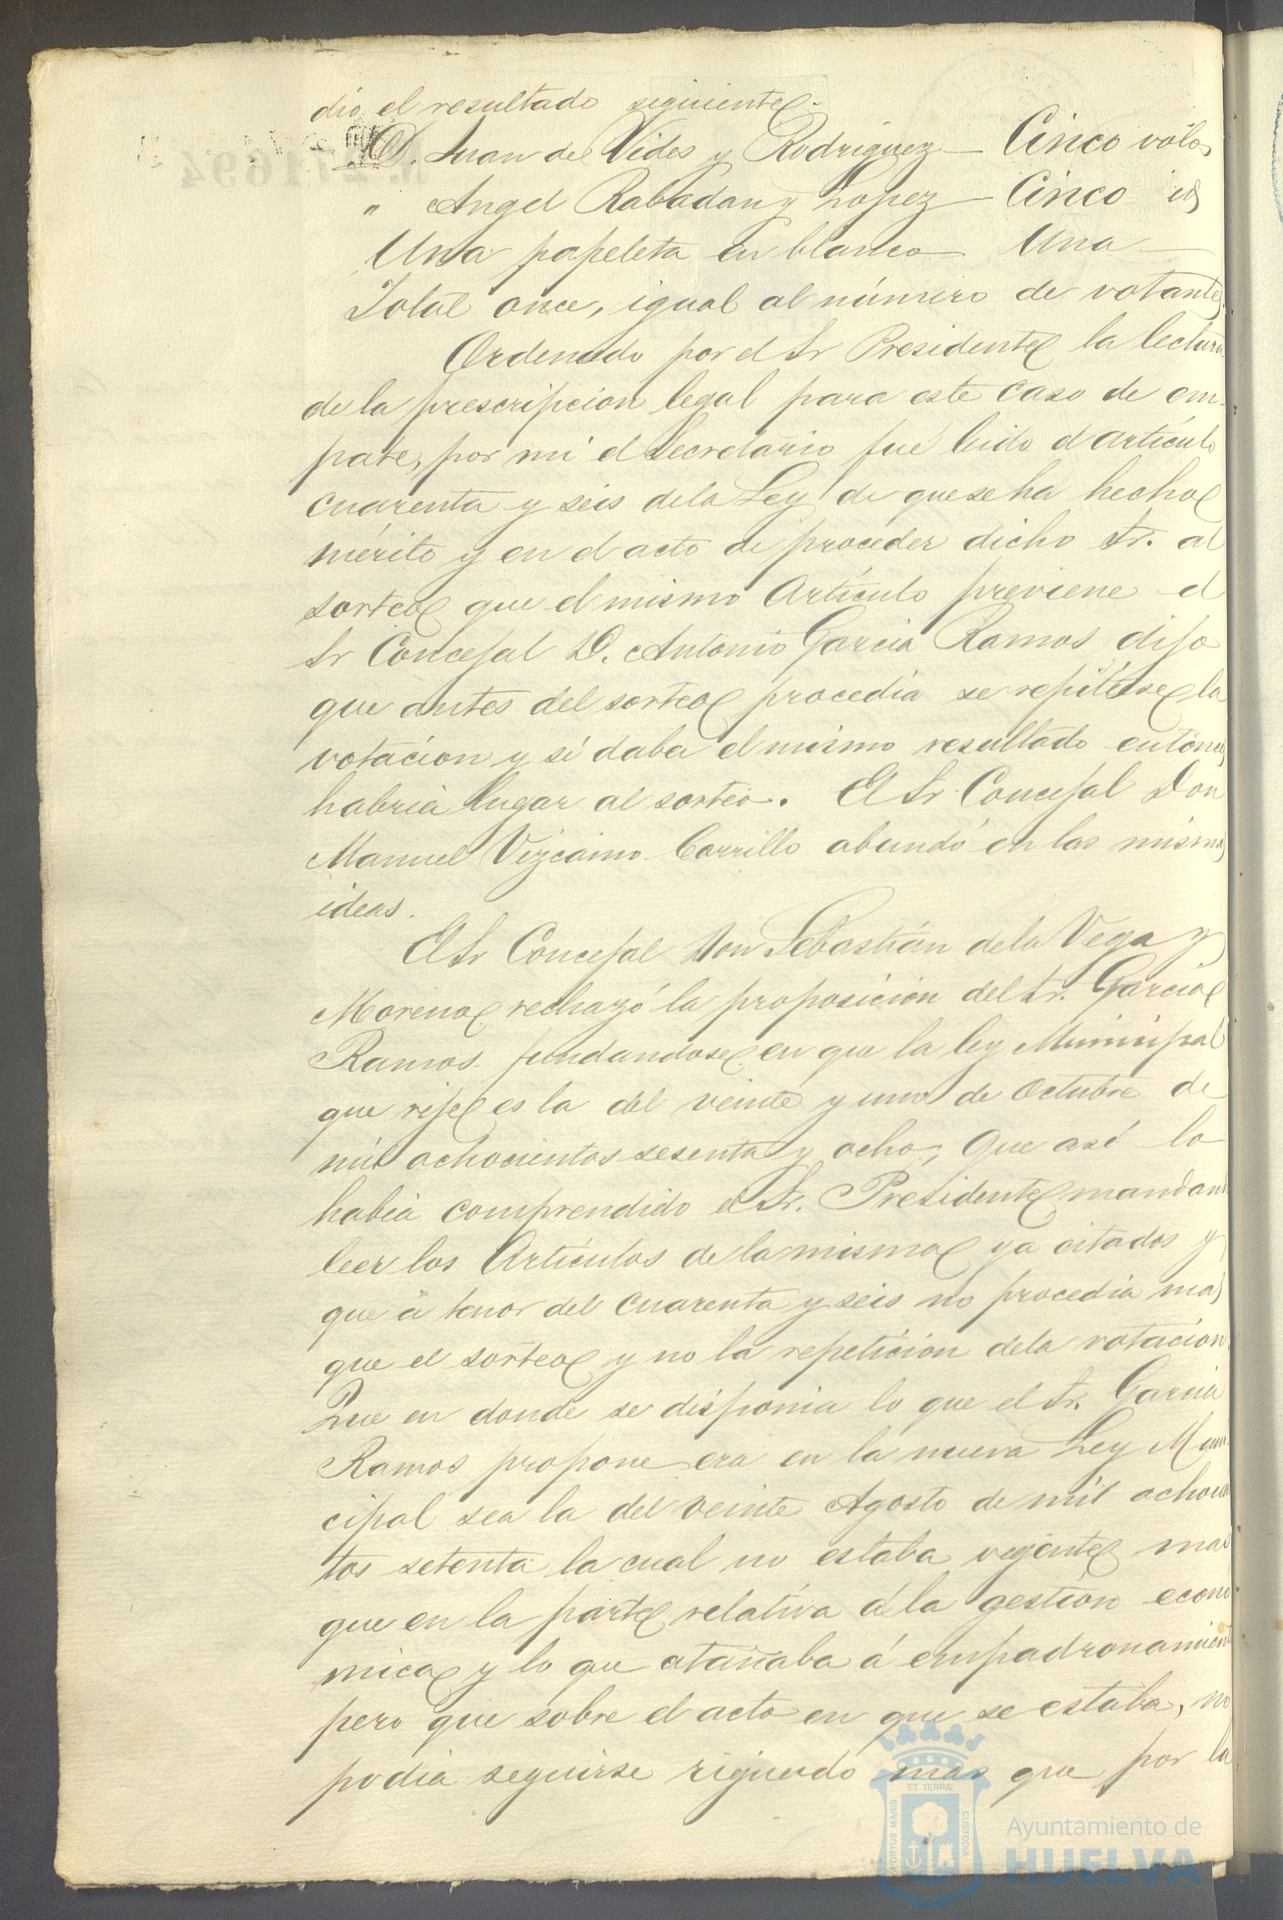 dió el resultado siguiente.
D. Juan de Vides y Rodriguez — Cinco votos
" Angel Rabadan y Lopez — Cinco id
Una papeleta en blanco — Una —
Total once, igual al número de votantes.
Ordenado por el Sr Presidente la lectura
de la prescripcion legal para este caso de em-
pate, por mi el Secretario fue leido el artículo
cuarenta y seis de la Ley de que se ha hecho
mérito y en el acto de proceder dicho Sr. al
sorteo que el mismo Artículo previene el
Sr Concejal D. Antonio Garcia Ramos dijo
que antes del sorteo procedia se repitiese la
votacion y si daba el mismo resultado entónces
habria lugar al sorteo. El Sr Concejal Don
Manuel Vizcaino Carrillo abundó en las mismas
ideas.
El Sr Concejal Don Sebastián de la Vega y
Moreno rechazó la proposicion del Sr. Garcia
Ramos fundandose en que la ley Municipal
que rije es la del veinte y uno de Octubre de
mil ochocientos sesenta y ocho; Que así lo
habia comprendido el Sr. Presidente mandando
leer los Artículos de la misma ya citados y
que á tenor del cuarenta y seis no procedia más
que el sorteo y no la repeticion de la votacion.
Que en donde se disponia lo que el Sr. Garcia
Ramos propone era en la nueva Ley Muni-
cipal sea la del veinte Agosto de mil ochocien
tos setenta la cual no estaba vigente mas
que en la parte relativa á la gestion econo-
mica y lo que atañaba á empadronamiento
pero que sobre el acto en que se estaba, no
podia seguirse rigiendo mas que por la
Nº 271694
ET TERRÆ
PORTUS MARIS
CUSTODIA
Ayuntamiento de
HUELVA